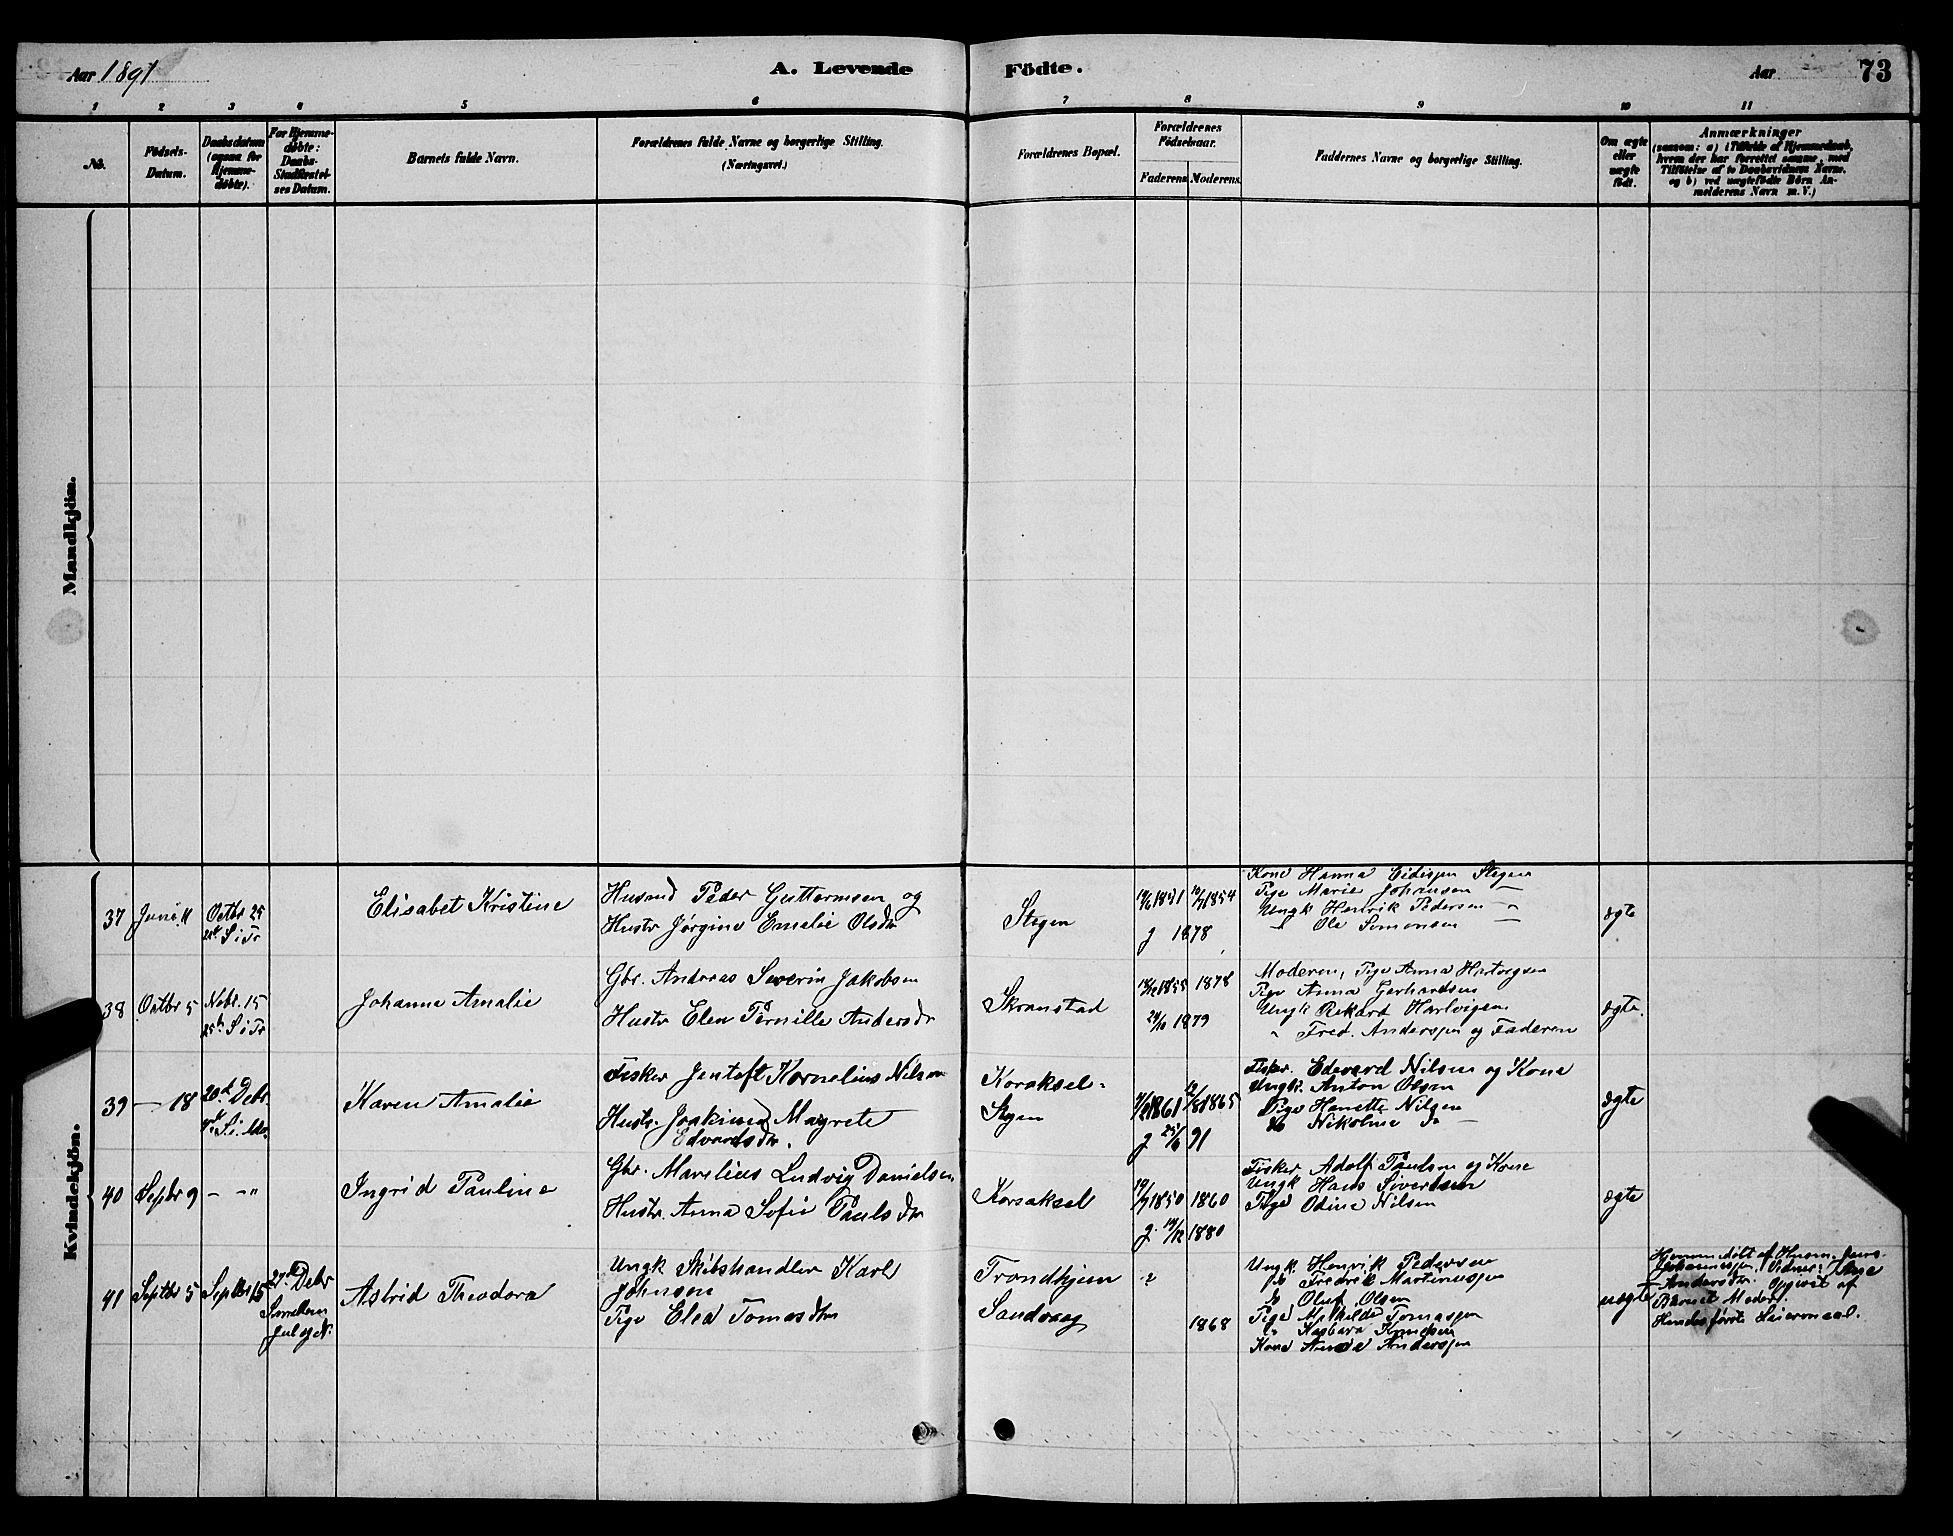 Aar 1891
A. Levende Födte.
Aar 73
1 2 3 4 5 6 7 8 9 10 11
No.
Födsels-Datum.
Daabsdatum (ogsaa for Hjemme-døbte).
For Hjemme-døbte: Daabs-Stadfæstel-ses Datum.
Barnets fulde Navn.
Forældrenes fulde Navne og borgerlige Stilling.
(Næringsvei.)
Forældrenes Bopæl.
Forældrenes Födselsaar.
Faderens Moderens.
Faddernes Navne og borgerlige Stilling.
Om ægte eller uægte födt.
Anmærkninger
(saasom: a) i Tilfælde af Hjemmedaab,
hvem der har forrettet samme, med
Tilføielse af to Daabsvidners Navne.
og b) ved uægtefödte Börn An-
melderens Navn m. V.)
Mandkjön.
Kvindekjön.
37 Juni 11 Octbr 25
Elisabet Kristine
Husmd Peder Guttormsen og
Hustr Jørgine Emelie Olsdtr
Stegen
1854
g 1878
Kone Hanna Eidissen Stegen
Pige Marie Johansen —
Ungk Henrik Pedersen "
Ole Simonsen —
ægte
38 Octbr 5 Nobr. 15
Johanna Amalie
Gbr. Andreas Severin Jakobsen
Hustr Elen Pernille Andersdtr
Skranstad
1855 1878
1879
Moderen, Pige Anna Hartvigsen
Pige Anna Gerhardsen
Ungk Rikard Hartvigsen
" Fred. Anderssen og Faderen
ægte.
39 — 18 20d Debr
Karen Amalie
Fisker Jentoft Kornelius Nilsen
Hustr. Joakima Magrete
Edvardsdtr.
Koraksel-
Stegen
1861 1865
g 91
Fisker. Edevard Nilsen og Kone
Ungk. Anton Olsen
Pige Hanette Nilsen
do Nikoline do —
ægte
40 Sepbr 9 — — "
Ingrid Pauline
Gbr. Marelius Ludvig Danielsen
Hustr. Anna Sofie Paulsdtr
Korsaksel
1850 1860
g. 1880
Fisker Adolf Paulsen og Kone
Ungk Hans Sivertsen
Pige Odine Nilsen
ægte
41 Septbr 5 Septbr 15 27de Debr
Astrid Theodora
Ungk Skibshandler Karl
Johnsen
Pige Elea Tomasdtr
Trondhjem
Sandvaag
1868
Ungk. Henrik Pedersen
do Fredrik Martinussen
do Oluf Olsen
Pige Mathilde Tomassen
Barbara Knudsen
Kone Anne Anderssen
uægte
Hjemmedøbt af Husm. Jens
Johannessen, Vidner:
Andersdtr. Opgivet af
Barnets Moder.
Hendes første Leiermaal.